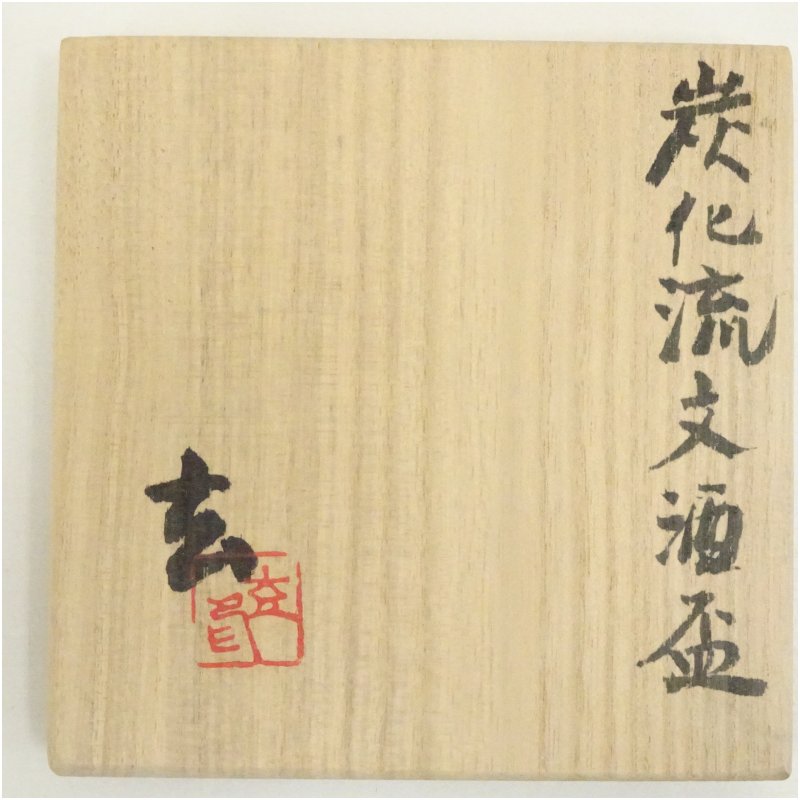 炭化流文酒盃
玄